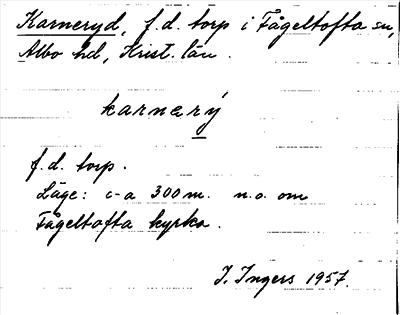 Karneryd, f.d. torp i Fågeltofta sn,
Albo hd, Krist. län.
karnerý
f.d. torp.
Läge: c-a 300 m. n.o. om
Fågeltofta kyrka.
I. Ingers 1957.